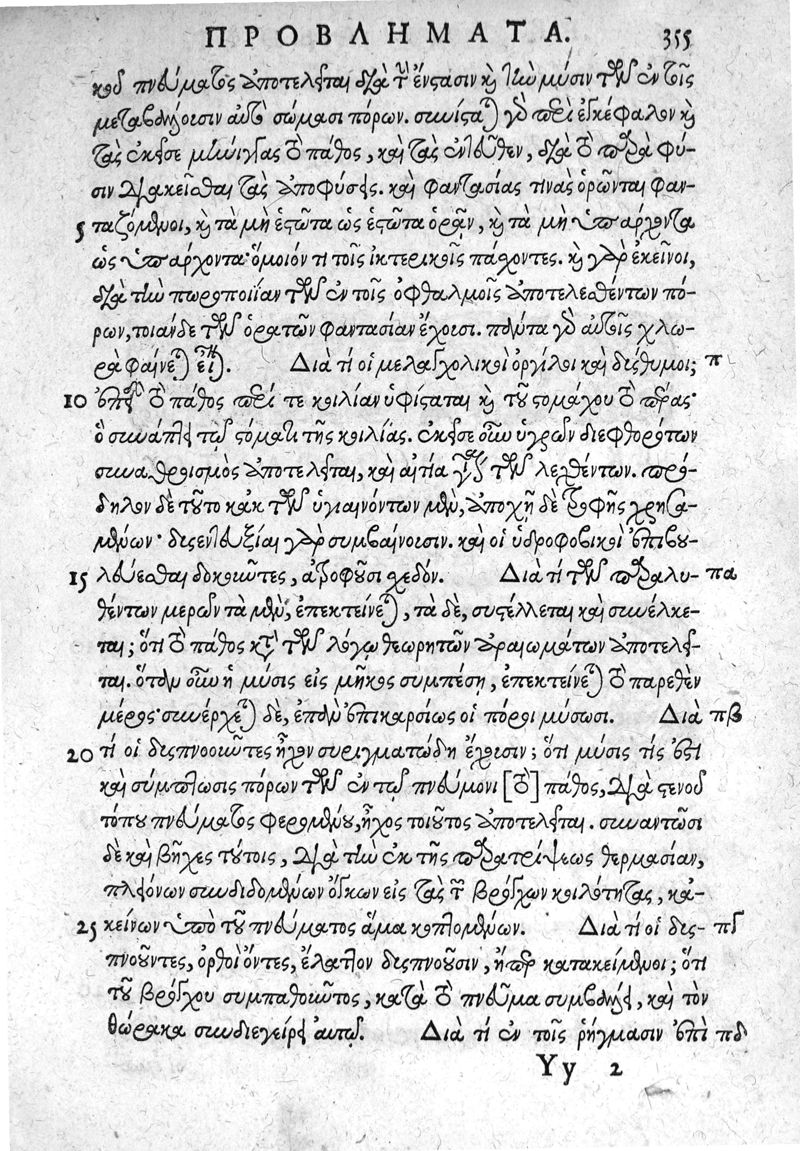 ΠΡΟΒΛΗΜΑΤΑ. 355
κοῦ πνεύματος ἀποτελεῖται διὰ τὴν ἔνστασιν καὶ τὴν μύσιν τῶν ἐν τοῖς
μεταβάλλουσιν αὐτὸ σώμασι πόρων. συνίσταται γὰρ περὶ ἐγκέφαλον καὶ
τὰς ἐκεῖσε μήνιγγας τὸ πάθος, καὶ τὰς ἐντεῦθεν, διὰ τὸ παρὰ φύ-
σιν διακεῖσθαι τὰς ἀποφύσεις. καὶ φαντασίας τινὰς ὁρῶνται φαν-
5 ταζόμενοι, καὶ τὰ μὴ ἑστῶτα ὡς ἑστῶτα ὁρᾶν, καὶ τὰ μὴ ὑπάρχοντα
ὡς ὑπάρχοντα· ὅμοιόν τι τοῖς ἰκτερικοῖς πάσχοντες. καὶ γὰρ ἐκεῖνοι,
διὰ τὴν πωροποιΐαν τῶν ἐν τοῖς ὀφθαλμοῖς ἀποτελεσθέντων πό-
ρων, τοιάνδε τῶν ὁρατῶν φαντασίαν ἔχουσι. πάντα γὰρ αὐτοῖς χλω-
ρὰ φαίνεται εἶναι. Διὰ τί οἱ μελαγχολικοὶ ὀργίλοι καὶ δύσθυμοι; π
10 ἐπεὶ τὸ πάθος περί τε κοιλίαν ὑφίσταται καὶ τοῦ στομάχου τὸ πέρας·
ὃ συνάπτει τῷ στόματι τῆς κοιλίας. ἐκεῖσε οὖν ὑγρῶν διεφθορότων
συναθροισμὸς ἀποτελεῖται, καὶ αἰτία γίνεται τῶν λεχθέντων. πρό-
δηλον δὲ τοῦτο κἀκ τῶν ὑγιαινόντων μὲν, ἀποχῇ δὲ τροφῆς χρησα-
μένων· δυσεντευξίαι γὰρ συμβαίνουσιν. καὶ οἱ ὑδροφοβικοὶ ἐπιβου-
15 λεύεσθαι δοκοῦντες, ἀτροφοῦσι σχεδόν. Διὰ τί τῶν παραλυ- πα
θέντων μερῶν τὰ μὲν, ἐπεκτείνεται, τὰ δὲ, συστέλλεται καὶ συνέλκε-
ται; ὅτι τὸ πάθος κατὰ τῶν λόγῳ θεωρητῶν ἀραιωμάτων ἀποτελεῖ-
ται. ὅταν οὖν ἡ μύσις εἰς μῆκος συμπέσῃ, ἐπεκτείνεται τὸ παρεθὲν
μέρος· συνέρχεται δὲ, ἐπὰν ἐπικαρσίως οἱ πόροι μύσωσι. Διὰ πβ
20 τί οἱ δυσπνοοῦντες ἦχον συριγματώδη ἔχουσιν; ὅτι μύσις τίς ἐστι
καὶ σύμπτωσις πόρων τῶν ἐν τῷ πνεύμονι [τὸ] πάθος, διὰ στενοῦ
τόπου πνεύματος φερομένου, ἦχος τοιοῦτος ἀποτελεῖται. συναντῶσι
δὲ καὶ βῆχες τούτοις, διὰ τὴν ἐκ τῆς παρατρίψεως θερμασίαν,
πλειόνων συνδιδομένων ὄγκων εἰς τὰς τῶν βρόγχων κοιλότητας, κἀ-
25 κείνων ὑπὸ τοῦ πνεύματος ἅμα κοπτομένων. Διὰ τί οἱ δυσ- πγ
πνοῦντες, ὀρθοὶ ὄντες, ἔλαττον δυσπνοῦσιν, ἤπερ κατακείμενοι; ὅτι
τοῦ βρόγχου συμπαθοῦντος, κατὰ τὸ πνεῦμα συμβάλλει, καὶ τὸν
θώρακα συνδιεγείρει αὐτῷ. Διὰ τί ἐν τοῖς ῥήγμασιν ἐπὶ πδ
Yy 2